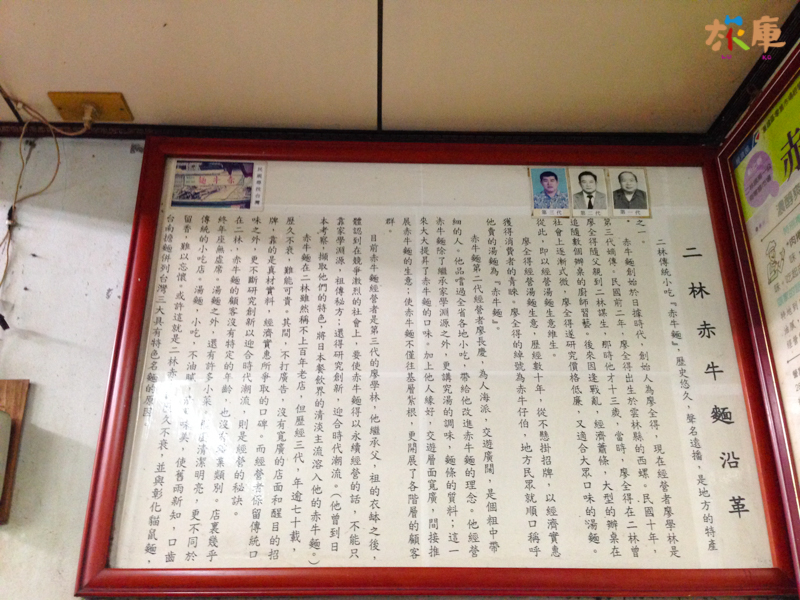 二林赤牛麵沿革
二林傳統小吃『赤牛麵』，歷史悠久，聲名遠播，是地方的特產
之一。
赤牛麵創始於日據時代，創始人為廖全得，現在經營者廖學林是
第三代嫡傳。民國前二年，廖全得出生於雲林縣的西螺。民國十年，
廖全得隨父親到二林謀生，那時他才十三歲，當時，廖全得在二林曾
追隨數個辦桌的廚師習藝。後來因逢戰亂，經濟蕭條，大型的辦桌在
社會上逐漸式微，廖全得遂研究價格低廉，又適合大眾口味的湯麵。
從此，即以經營湯麵生意維生。
廖全得經營湯麵生意，歷經數十年，從不懸掛招牌，以經濟實惠
獲得消費者的青睞。廖全得的綽號為赤牛仔伯，地方民眾就順口稱呼
他賣的湯麵為『赤牛麵』。
赤牛麵第二代經營者廖長慶，為人海派，交遊廣闊，是個粗中帶
細的人。他品嚐過全省各地小吃，帶給他改進赤牛麵的理念。他經營
赤牛麵除了繼承家學淵源之外，更講究湯的調味，麵條的質料；這一
來大大提昇了赤牛麵的口味。加上他人緣好，交遊層面寬廣，間接推
展赤牛麵的生意；使赤牛麵不僅往基層紮根，更開展了各階層的顧客
群。
目前赤牛麵經營者是第三代的廖學林，他繼承父，祖的衣缽之後，
體認到在競爭激烈的社會上，要使赤牛麵得以永續經營的話，不能只
靠家學淵源，祖傳秘方；還得研究創新，迎合時代潮流。（他曾到日
本考察，擷取他們的特色，將日本餐飲界的清淡主流溶入他的赤牛麵。）
赤牛麵在二林雖然稱不上百年老店，但歷經三代，年逾七十載，
歷久不衰，難能可貴。其間，不打廣告，沒有寬廣的店面和醒目的招
牌，靠的是真材實料，經濟實惠所爭取的口碑。而經營者保留傳統口
味之外，更不斷研究創新以迎合時代潮流，則是經營的秘訣。
在二林，赤牛麵的顧客沒有特定的年齡，也沒 業類別。店裏幾乎
終年座無虛席。湯麵之外，還有許多小菜 清潔明亮，更不同於
傳統的小吃店。湯麵，小吃，不油膩 味美，使舊雨新知，口齒
留香，難以忘懷。或許這就是二林赤 久不衰，並與彰化貓鼠麵，
台南擔麵併列台灣三大具有特色名麵的原因
第一代
第二代
第三代
茶庫
赤